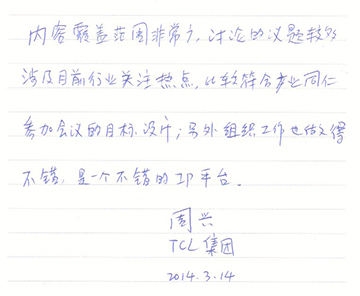 内容覆盖范围非常广，讨论的议题较多
涉及目前行业关注热点，比较符合产业同仁
参加会议的目标设计；另外组织工作也做得
不错，是一个不错的IP平台。
周兴
TCL集团
2014.3.14